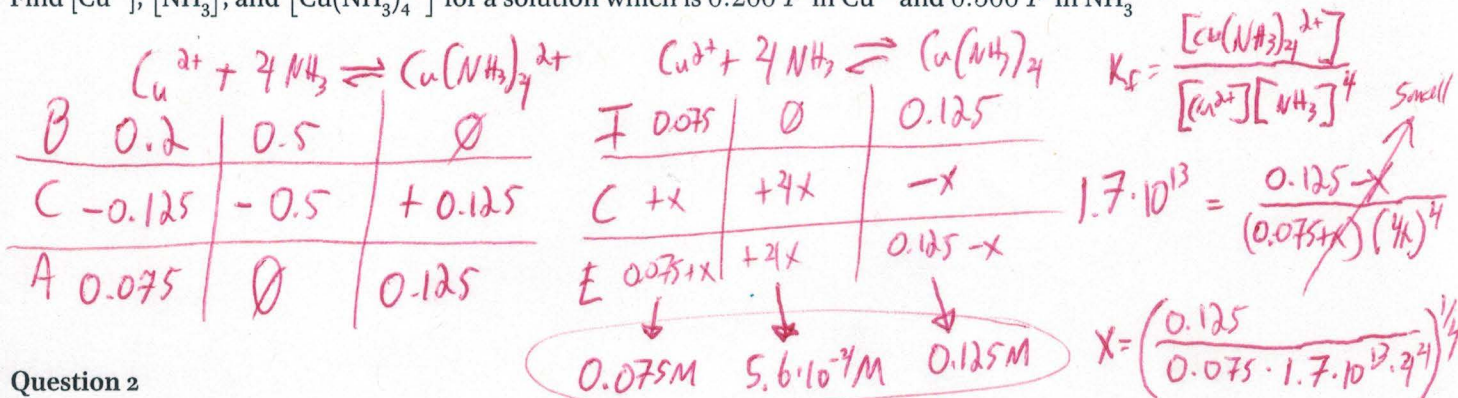 Find [Cu²⁺], [NH₃], and [Cu(NH₃)₄²⁺] for a solution which is 0.200 F in Cu²⁺ and 0.500 F in NH₃
Cu²⁺ + 4 NH₃ ⇌ Cu(NH₃)₄²⁺
B 0.2 | 0.5 | ∅
C -0.125 | -0.5 | +0.125
A 0.075 | ∅ | 0.125
Cu²⁺ + 4 NH₃ ⇌ Cu(NH₃)₄
I 0.075 | ∅ | 0.125
C +x | +4x | -x
E 0.075+x | +4x | 0.125-x
0.075M 5.6·10⁻⁴M 0.125M
K_f = [Cu(NH₃)₄²⁺] / [Cu²⁺][NH₃]⁴
Small
1.7·10¹³ = 0.125-x / (0.075+x)(4x)⁴
x = (0.125 / 0.075·1.7·10¹³·4⁴)^1/4
Question 2